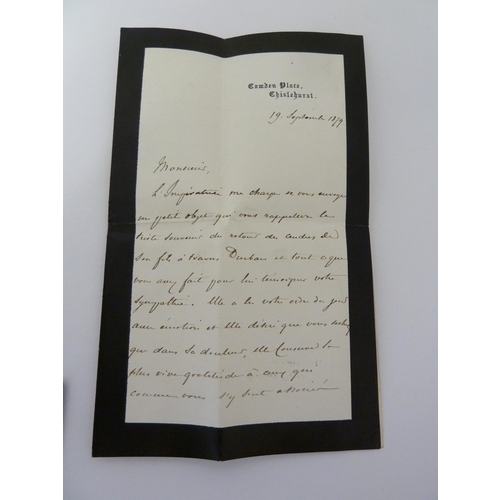 Camden Place,
Chislehurst.
19. Septembre 1879
Monsieur,
L'Impératrice me charge de vous envoyer
un petit objet qui vous rappelera le
triste souvenir du retour des cendres de
son fils à travers Durban et tout ce que
vous avez fait pour lui témoigner votre
sympathie. Elle a lu votre ordre du jour
avec émotion et Elle désire que vous sachiez
que dans sa douleur, Elle conserve la
plus vive gratitude à ceux qui
comme vous s'y sont associés